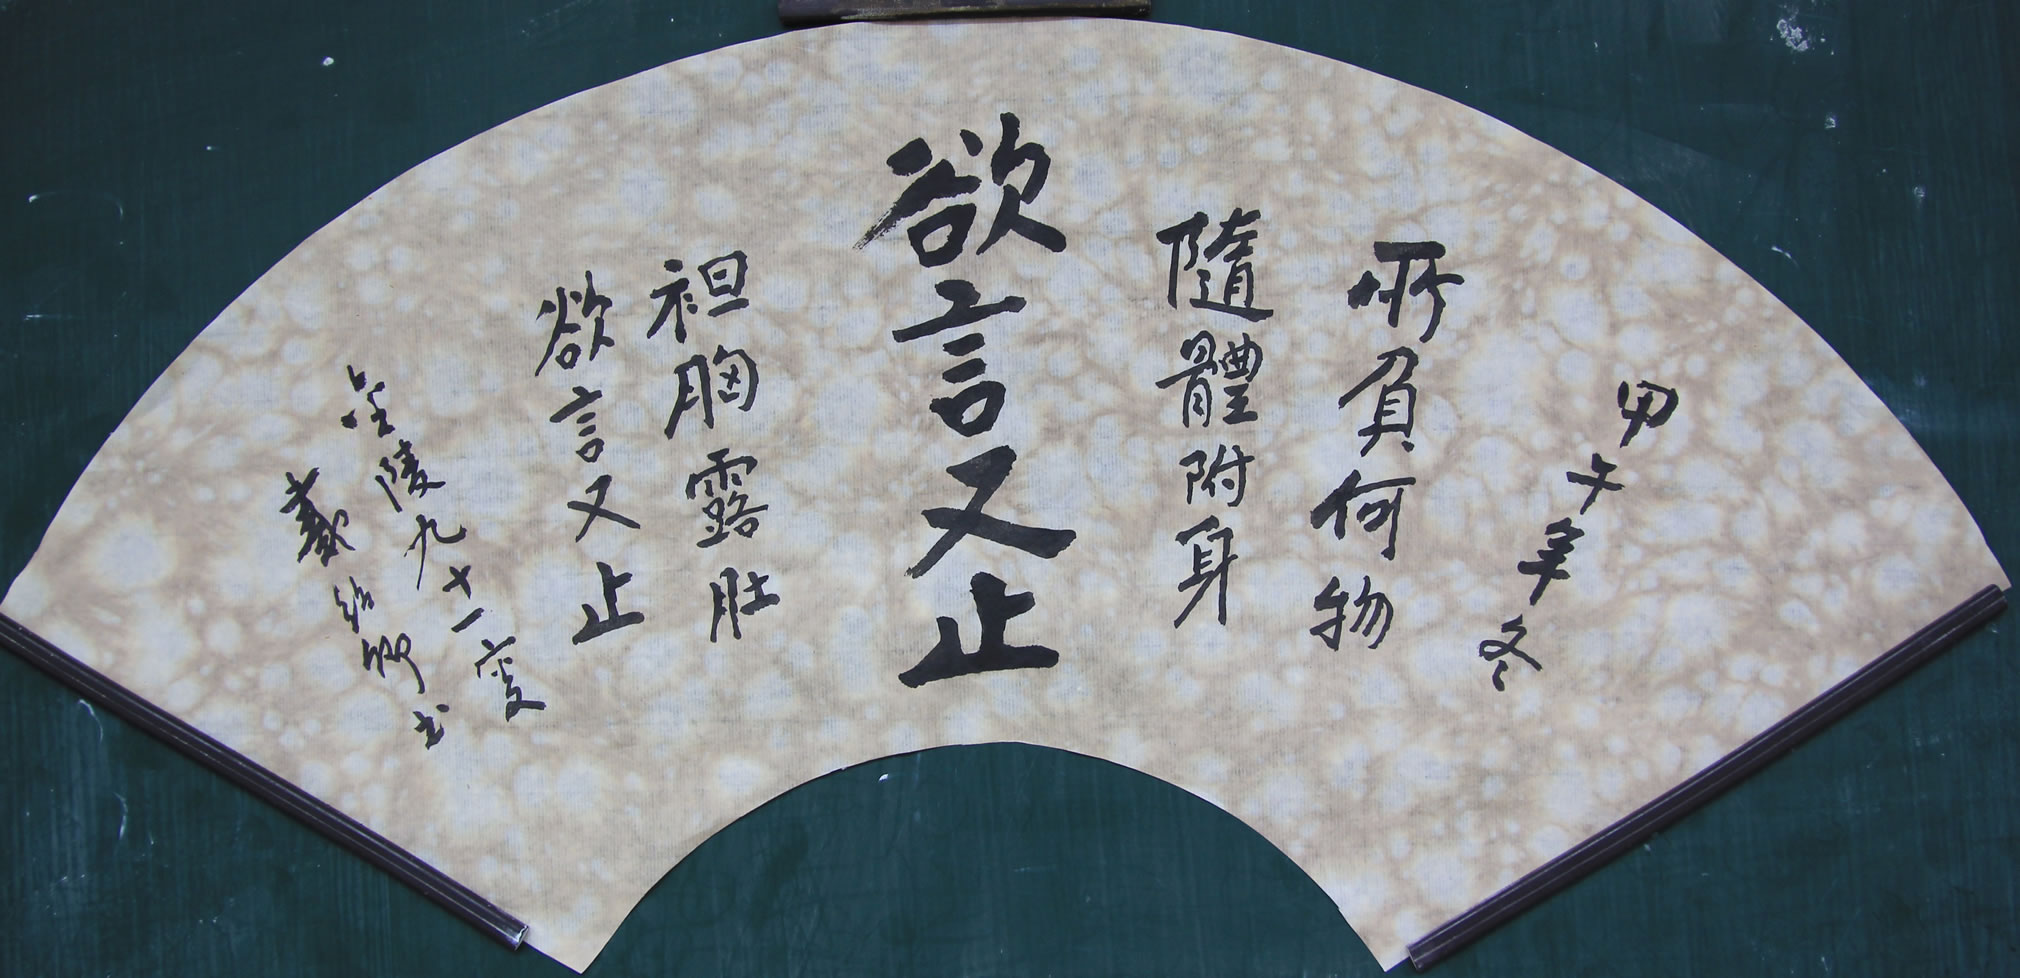 甲午年冬
所負何物
隨體附身
欲言又止
袒胸露肚
欲言又止
金陵九十一叟
戴紹卿书